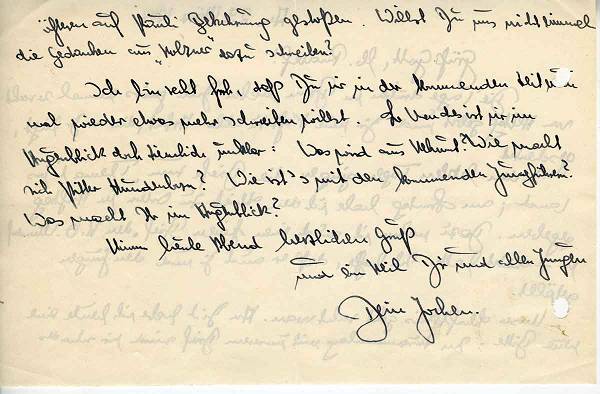 öfteren auf Pauli Bekehrung gestoßen. Willst Du uns nicht einmal
die Gedanken aus "Holzner" dazu schreiben?
Ich bin recht froh, daß Du mir in der kommenden Zeit
mal wieder etwas mehr schreiben willst. So ist mir im
Augenblick doch ziemliches unklar: Was wird aus Helmut? Wie macht
sich? Wie ist's mit den kommenden Jungführern?
Was macht Ihr im Augenblick?
Nimm heute Abend herzlichen Gruß
und ein Heil Dir und allen Jungen
Dein Jochen.